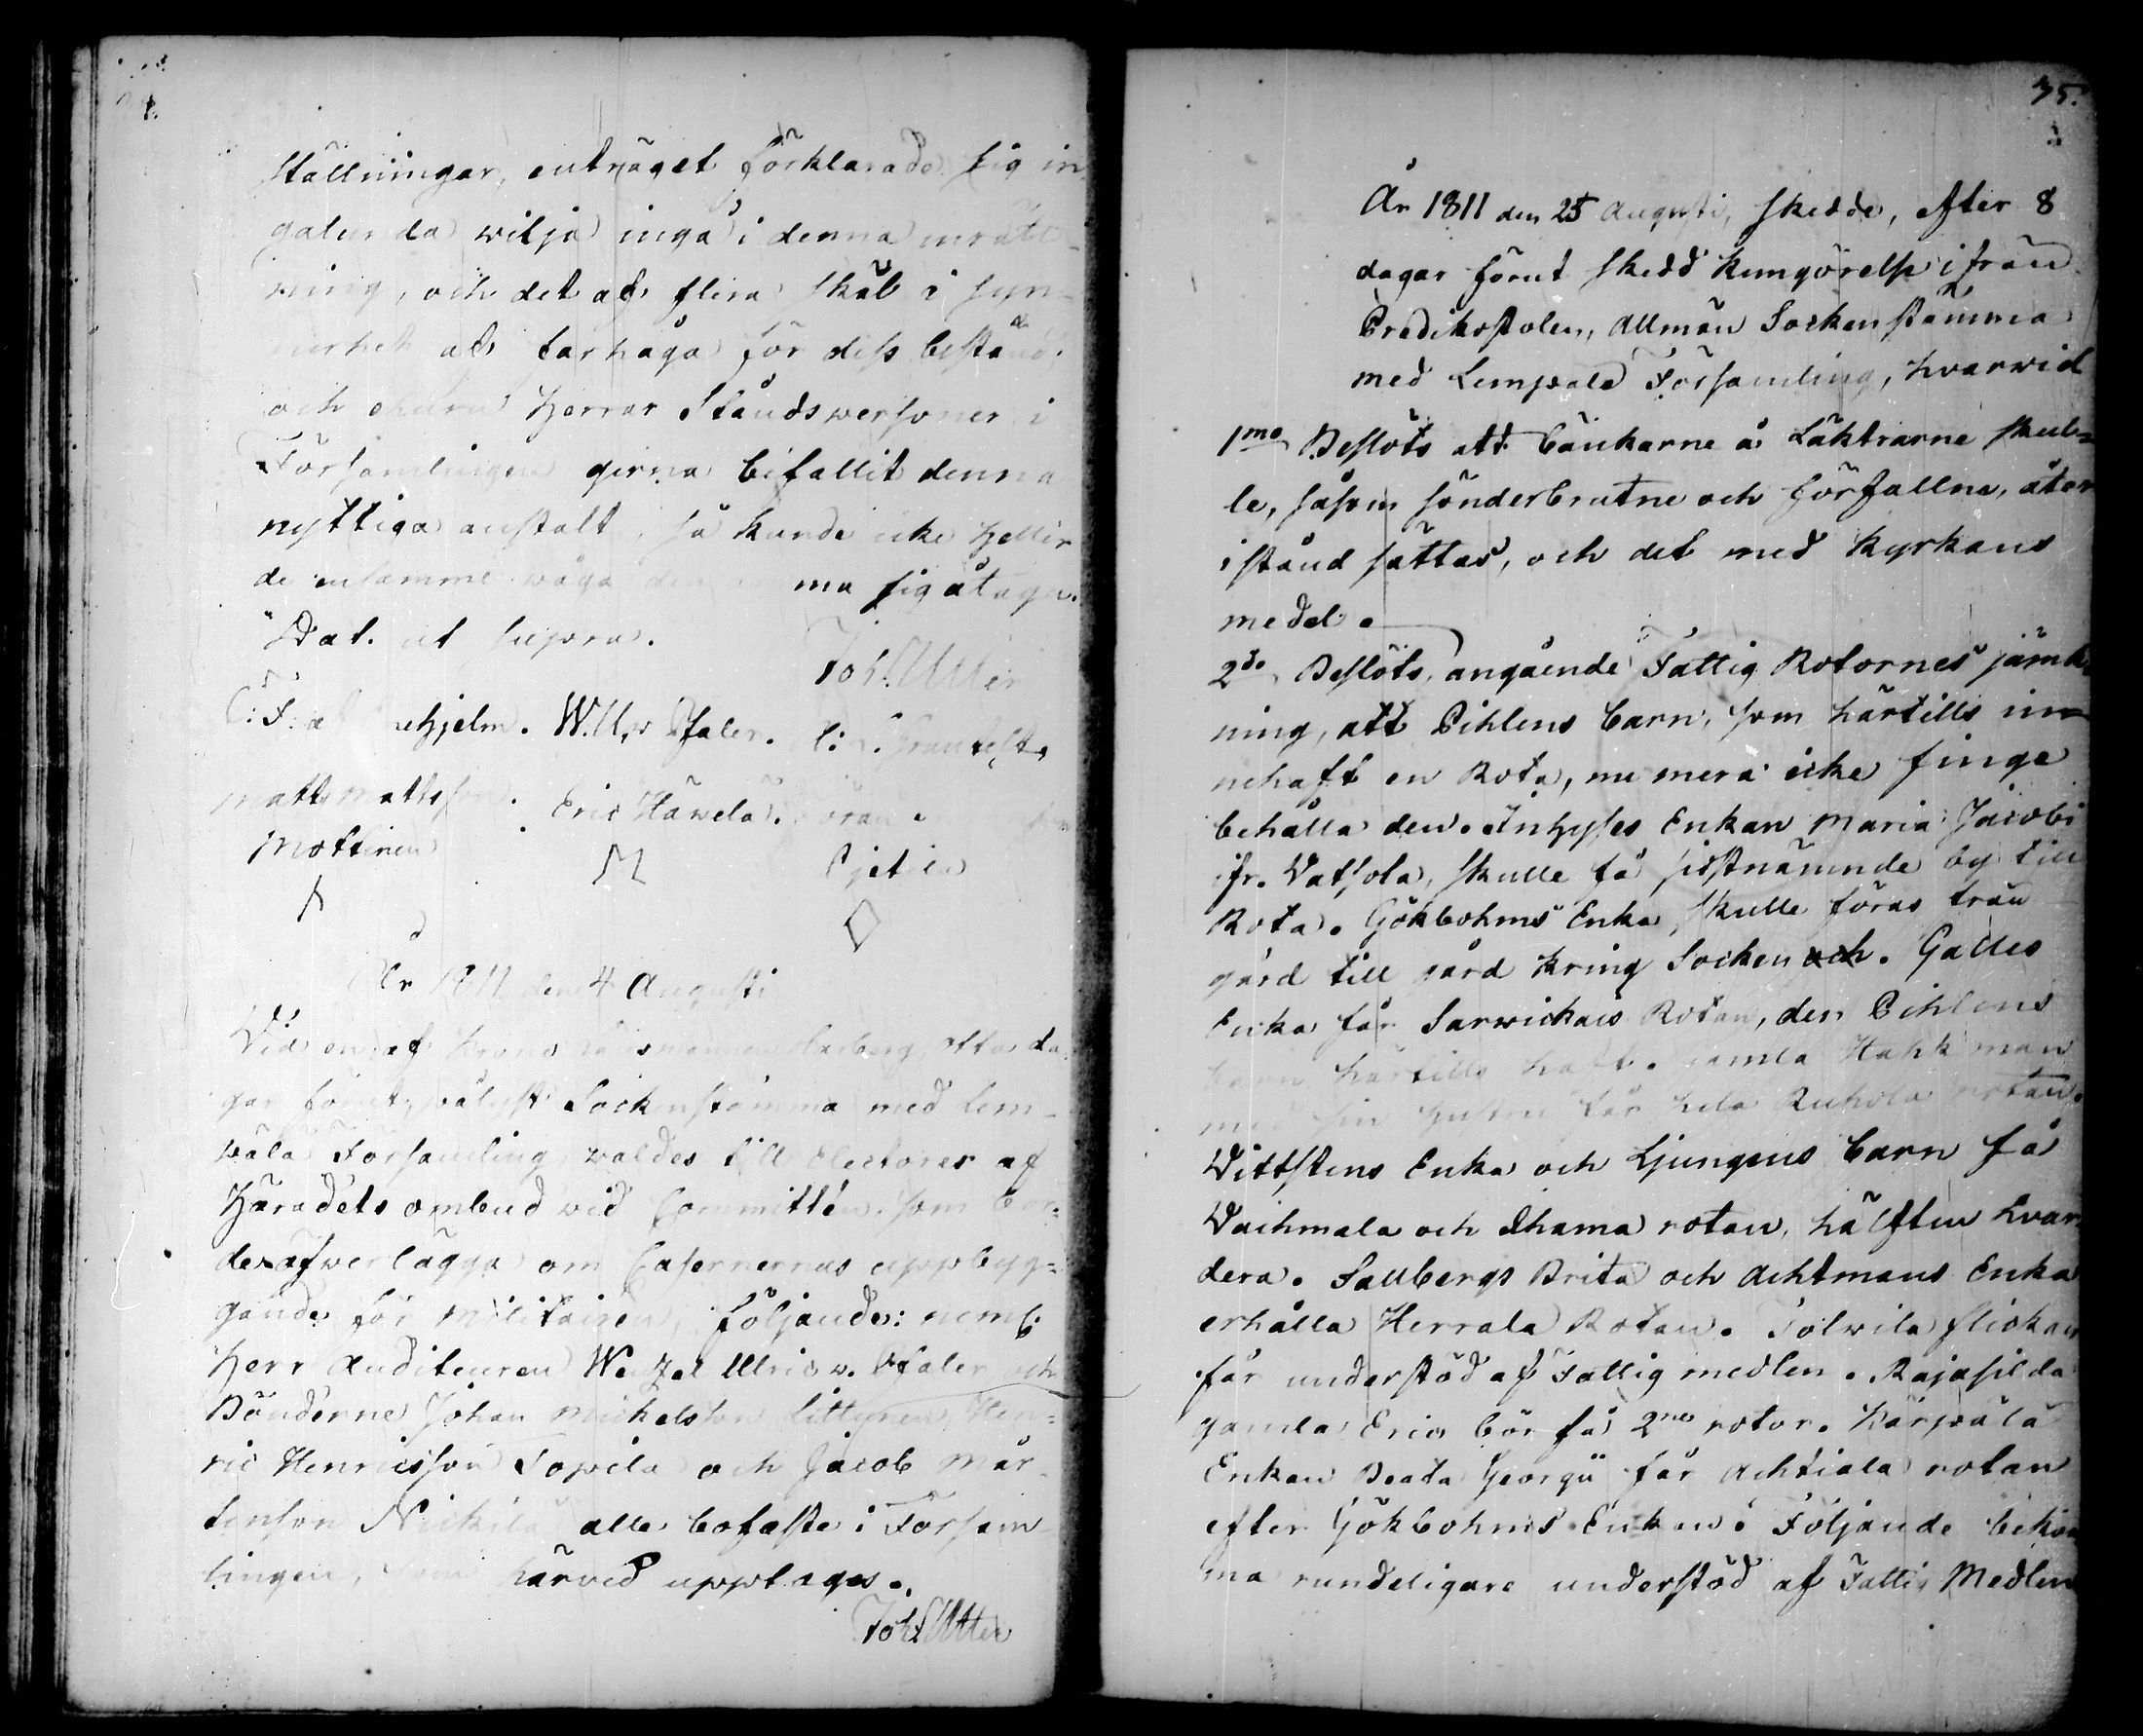 ställningar, enträget förklarade sig in-
galunda wilja ingå i denna inrätt-
ning, och det af flera skäl i syn-
nerhet af farhåga för dess bestånd.
och ehuru Herrar Ståndspersoner i
Församlingen gerna bifallit denna
nyttiga anstalt, så kunde icke heller
de ensamme wåga den samma sig åtaga.
Dat. ut supra.
Joh. Utter
C: F: hjelm. W. U. v Pfaler.
Matts Mattsson. Eric Häwelä.
Mottinen
År 1811 den 4 Augusti
Wid en af Krono Länsmannen otta da
gar förut, pålyst Sockenstämma med Lem-
pälä Församling waldes till Electorer af
Häradets ombud wid Committén som bör-
de öfwerlägga om Casernernas uppbyg-
gande för Militairen, följande: neml:
Herr Auditeuren Wentzel Ulric v. Pfaler och
Bönderne Johan Michelsson Littynen, Hen-
ric Henricsson Sopila och Jacob Mår
tensson Nickilä alle bofaste i Försam
lingen, som härved upptages.
Joh. Utter
35.
År 1811 den 25 Augusti, skedde, efter 8
dagar förut skedd kungörelse ifrån
Predikstolen, Allmän Sockenstämma
med Lempälä Församling, hvarwid
1mo Beslöts att bänkarne å Läktrarne skul-
le, såsom sönderbrutne och förfallne, åter
i stånd sättas, och det med Kyrkans
medel.
2do Beslöts, angående Fattig Rotornes jämk
ning, att Pihlens barn, som härtills in-
nehaft en Rota, nu mera icke finge
behålla den. Inhyses Enkan Maria Jacobi
ifr. Watsola, skulle få sistnämnde by till
Rota. Gökbohms Enka skulle föras från
gård till gård kring Socken och. Galles
Enka får Sarwickais Rotan, den Pihlens
barn härtills haft. Gamla Hakkman
med sin hustru får hela Kuhola rotan.
Wittstens Enka och Ljungens barn få
Waihmala och Ahama rotan, hälften hvar
dera. Sallbergs Brita och Achtmans Enka
erhålla Herrala Rotan. Tolwila flickan
får understöd af Fattig medlen. Rajasilda
gamla Eric bör få 2ne rotor. Kärpälä
Enkan Beata Georgii får Achtiala rotan
efter Gökbohms Enkan. Följande bekom
ma rundeligare understöd af Fattig Medlen